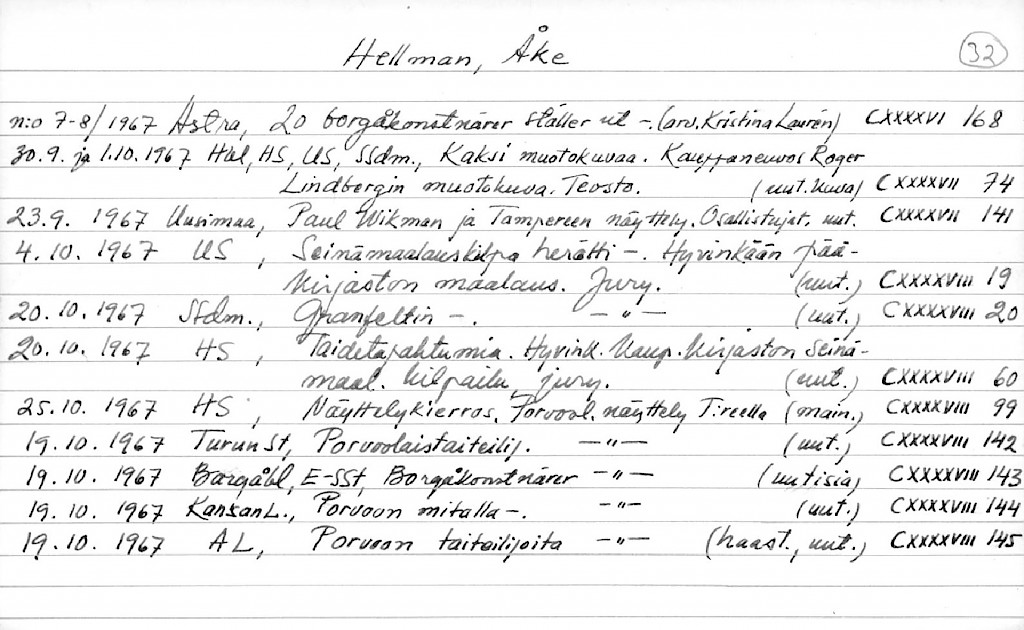 Hellman, Åke 32
n:o 7-8/1967 Astra, 20 borgåkonstnärer ställer ut -. (arv. Kristina Laurén) CXXXXVI 168
30.9. ja 1.10.1967 Hbl, HS, US, SSdm., Kaksi muotokuvaa. Kauppaneuvos Roger
Lindbergin muotokuva. Teosto. (uut. kuva) CXXXXVII 74
23.9. 1967 Uusimaa, Paul Wikman ja Tampereen näyttely. Osallistujat. uut. CXXXXVII 141
4.10. 1967 US, Seinämaalauskilpa herätti -. Hyvinkään pää-
kirjaston maalaus. Jury. (uut.) CXXXXVIII 19
20.10. 1967 SSdm., Granfeltin -. -"- (uut.) CXXXXVIII 20
20.10. 1967 HS, Taidetapahtumia. Hyvink. kaup. kirjaston seinä-
maal. kilpailu, jury. (uut.) CXXXXVIII 60
25.10. 1967 HS, Näyttelykierros. Porvool. näyttely T:reella (main.) CXXXXVIII 99
19.10. 1967 TurunSt, Porvoolaistaiteilij. -"- (uut.) CXXXXVIII 142
19.10. 1967 Borgåbl, E-SSt, Borgåkonstnärer -"- (uutisia) CXXXXVIII 143
19.10. 1967 KansanL., Porvoon mitalla -. -"- (uut.) CXXXXVIII 144
19.10. 1967 AL, Porvoon taiteilijoita -"- (haast., uut.) CXXXXVIII 145